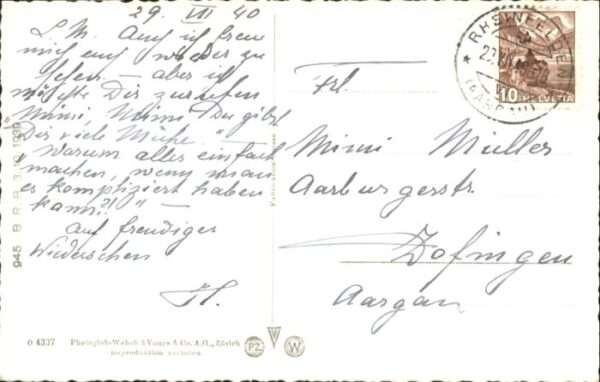 29. VII 40
L. M. Auch ich freu
mich euch wieder zu
sehen – aber ich
möchte Dir zurufen
"Mimi, Mimi Du gibst
Dir viele Mühe." –
"Warum alles einfach
machen, wenn man
es kompliziert haben
kann?!" –
Auf freudiges
Wiedersehen
H.
Frl.
Mimi Müller
Aarburgerstr.
Zofingen
Aargau
* RHEINFELDEN *
(AARGAU)
10 HELVETIA
945 B.R.B. 3.10.1939
O 4337 Photoglob-Wehrli & Vouga & Co. A.G., Zürich
Reproduktion verboten
PZ W